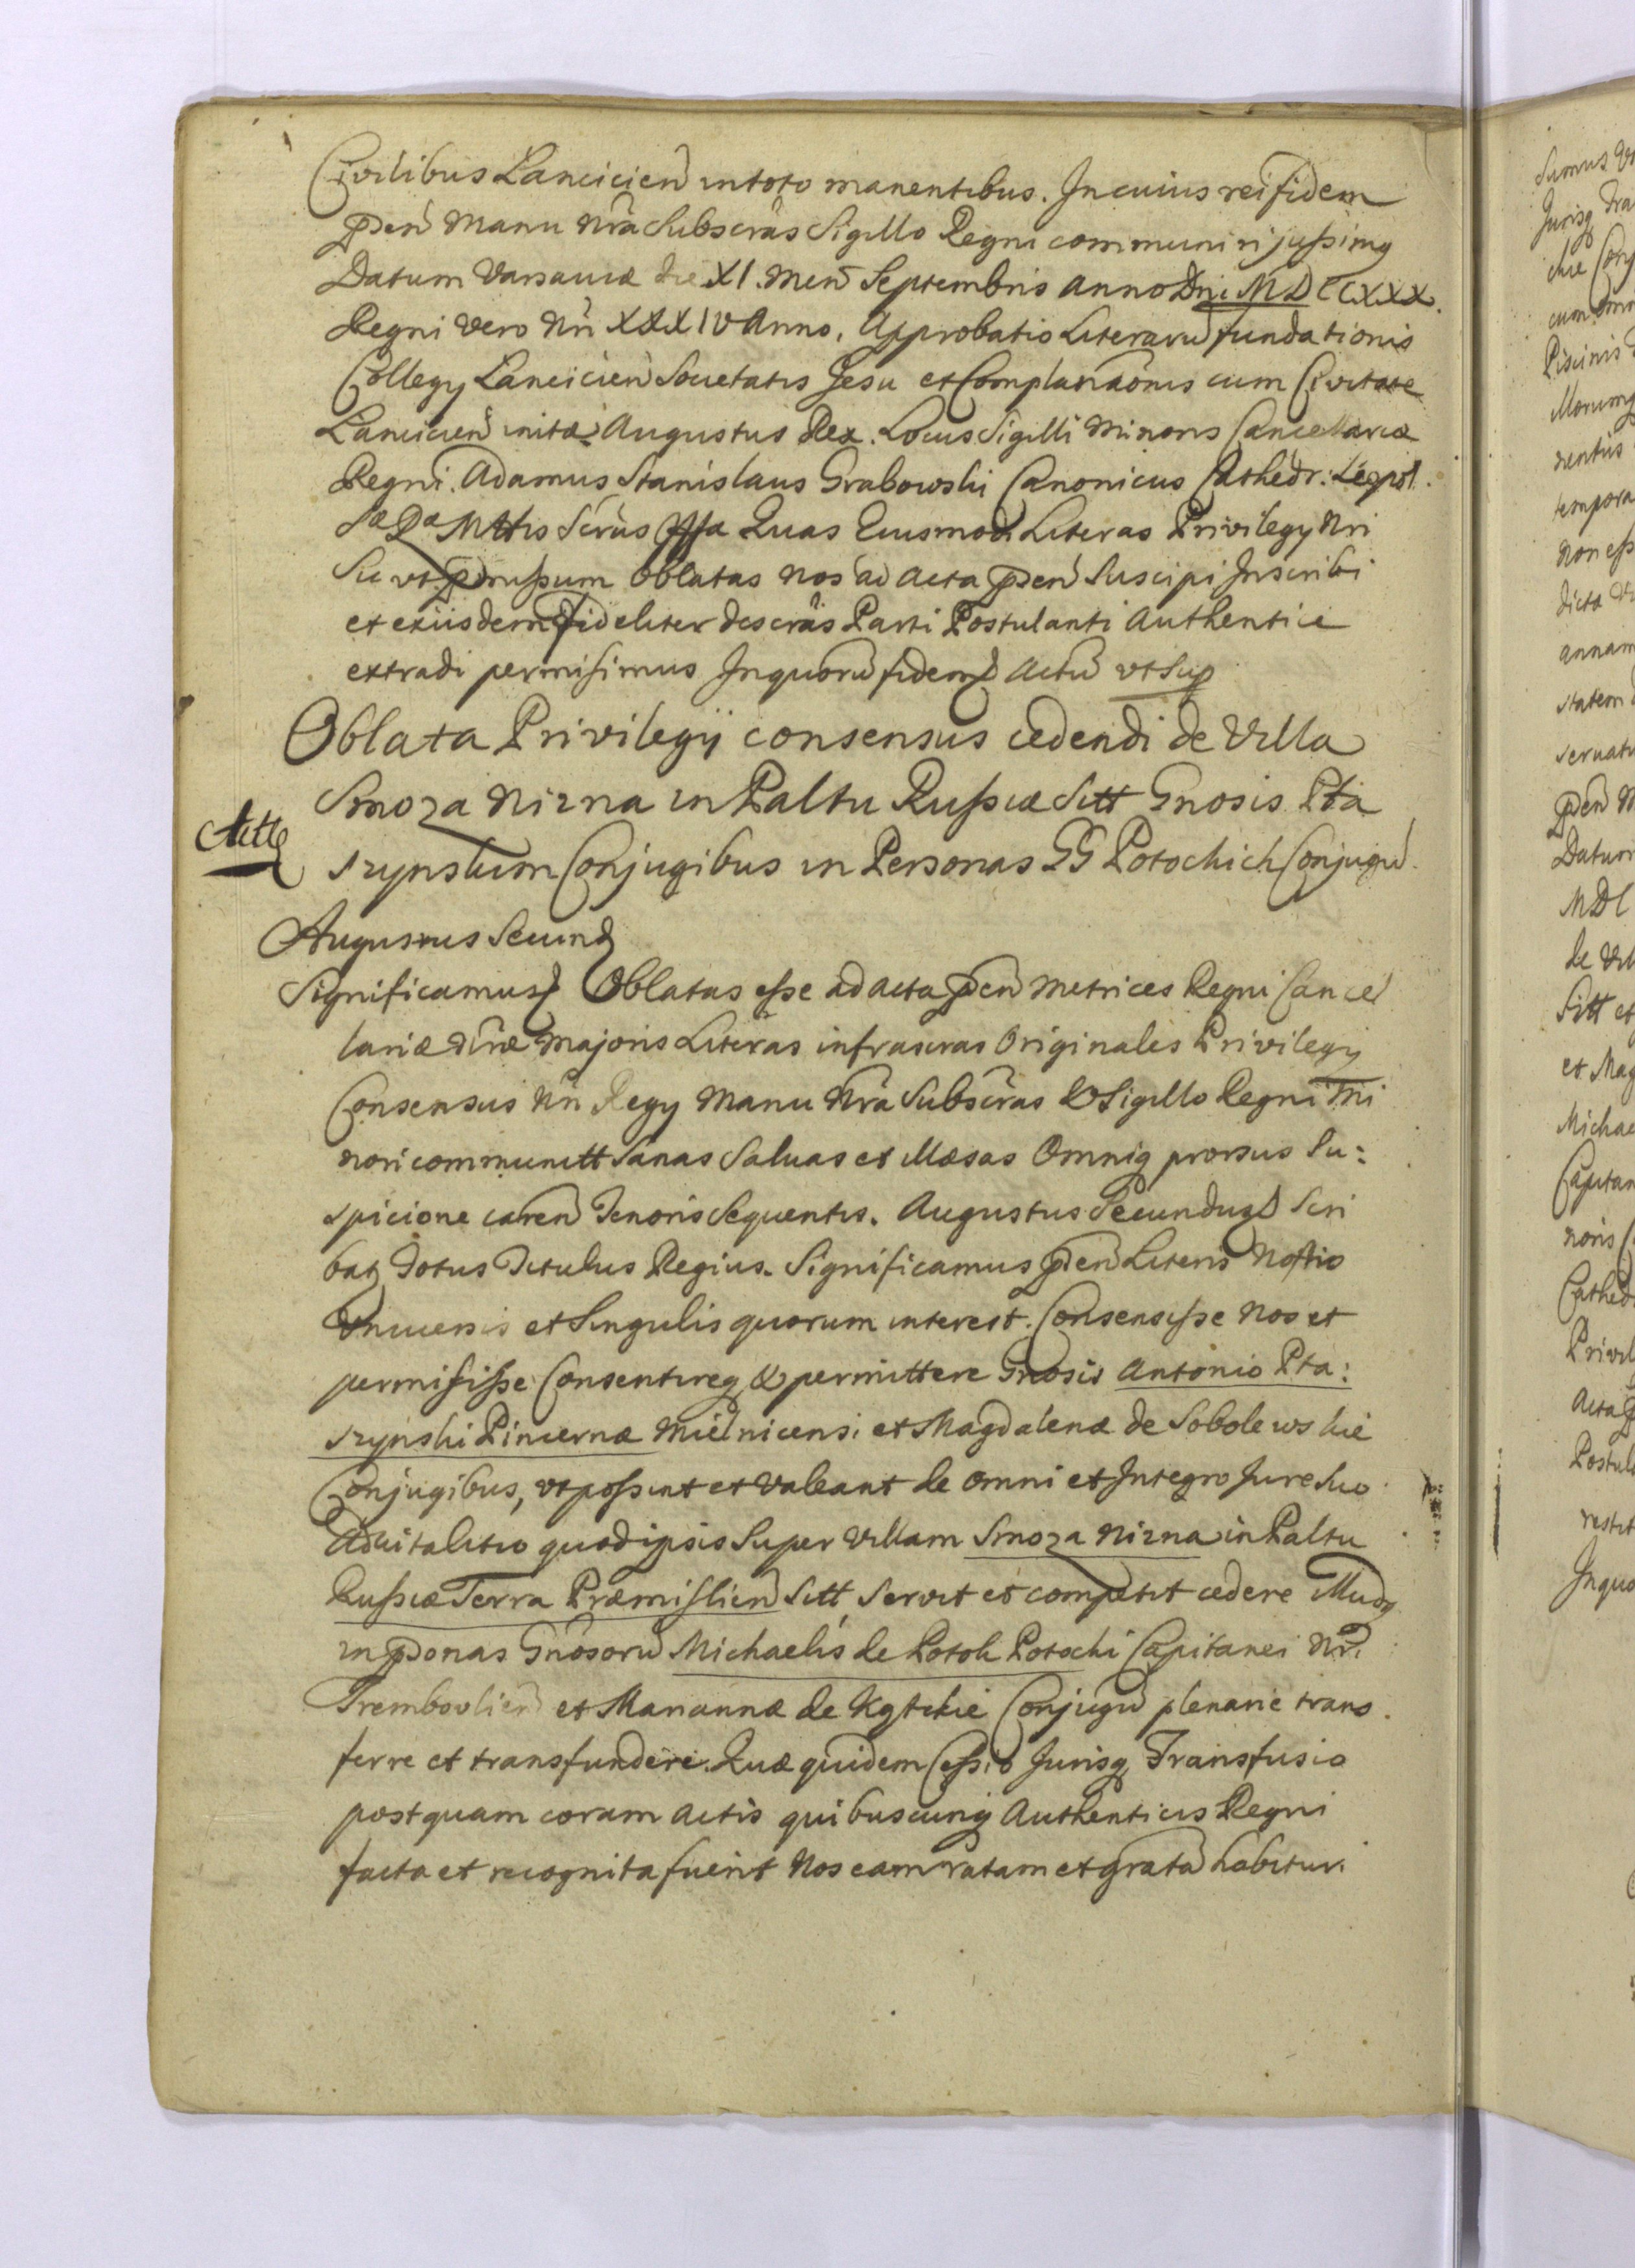 Civilibus Lancicien in toto manentibus. In cuius rei fidem
pten Manu Nra Subscras Sigillo Regni communiri jussimq
Datum Varsaviæ die XI. Men Septembris Anno Dni MDCCXXX.
Regni vero Nri XXXIV Anno. Approbatio Literaru fundationis
Collegy Lancicien Societatis Jesu et Complanaonis cum Civitate
Lancicien initæ. Augustus Rex. Locus Sigilli Minoris Cancellariæ
Regni. Adamus Stanislaus Grabowski Canonicus Cathedr: Leopol.
Sæ Ræ Mttis Scrius Mpa Quas Eiusmodi Literas Privilegy Nri
Sic ut præmissum Oblatas Nos ad Acta pten Suscipi Inscribi
et ex iisdem fideliter descras Parti Postulanti Authentice
extradi permisimus In quoru fidem Actu ut Sup
Oblata Privilegij consensus cedendi de Villa
Smoza Nizna in Paltu Russiæ Sitt Gnosis Pta
szynskim Conjugibus in Personas GG Potockich Conjugu
Augustus Secund
Significamus Oblatas esse ad Acta pten Metrices Regni Cancel
lariæ Nræ Majoris Literas infrascras Originales Privilegy
Consensus Nri Regy Manu Nra Subscras & Sigillo Regni Mi
nori communitt Sanas Salvas et Illæsas Omniq prorsus Su:
spicione caren Tenoris Sequentis. Augustus Secundus Scri
bat Totus Titulus Regius. Significamus pten Literis Nostris
Universis et Singulis quorum interest. Consensisse Nos et
permisisse Consentireq & permittere Gnosis Antonio Pta:
szynski Pincernæ Mielnicensi et Magdalenæ de Sobolewskie
Conjugibus, ut possint et valeant de omni et Integro Jure Suo
Advitalitio quod ipsis Super Villam Smoza Nizna in Paltu
Russiæ Terra Præmislien Sitt Servit et competit cedere Illudq
in psonas Gnosoru Michaelis de Potok Potocki Capitanei Nri
Tremboulien et Mariannæ de Kątckie Conjugu plenarie trans
ferre et transfundere. Quæ quidem Cessio Jurisq Transfusio
postquam coram Actis quibuscunq Authenticis Regni
facta et recognita fuerit Nos eam ratam et grata habituri